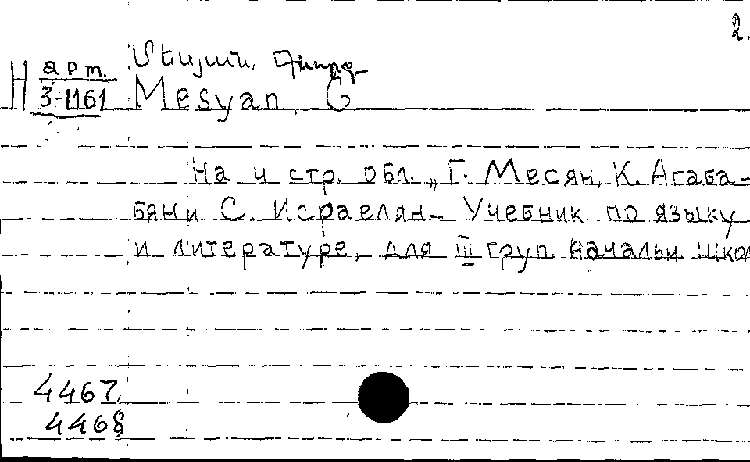 2.
Н арт. Մեսյան, Գևորգ
3-1161 Mesyan, G
На 4 стр. обл. „Г. Месян, К. Агаба-
бян и С. Исраелян - Учебник по языку
и литературе, для III груп начальн школ
4467
4468